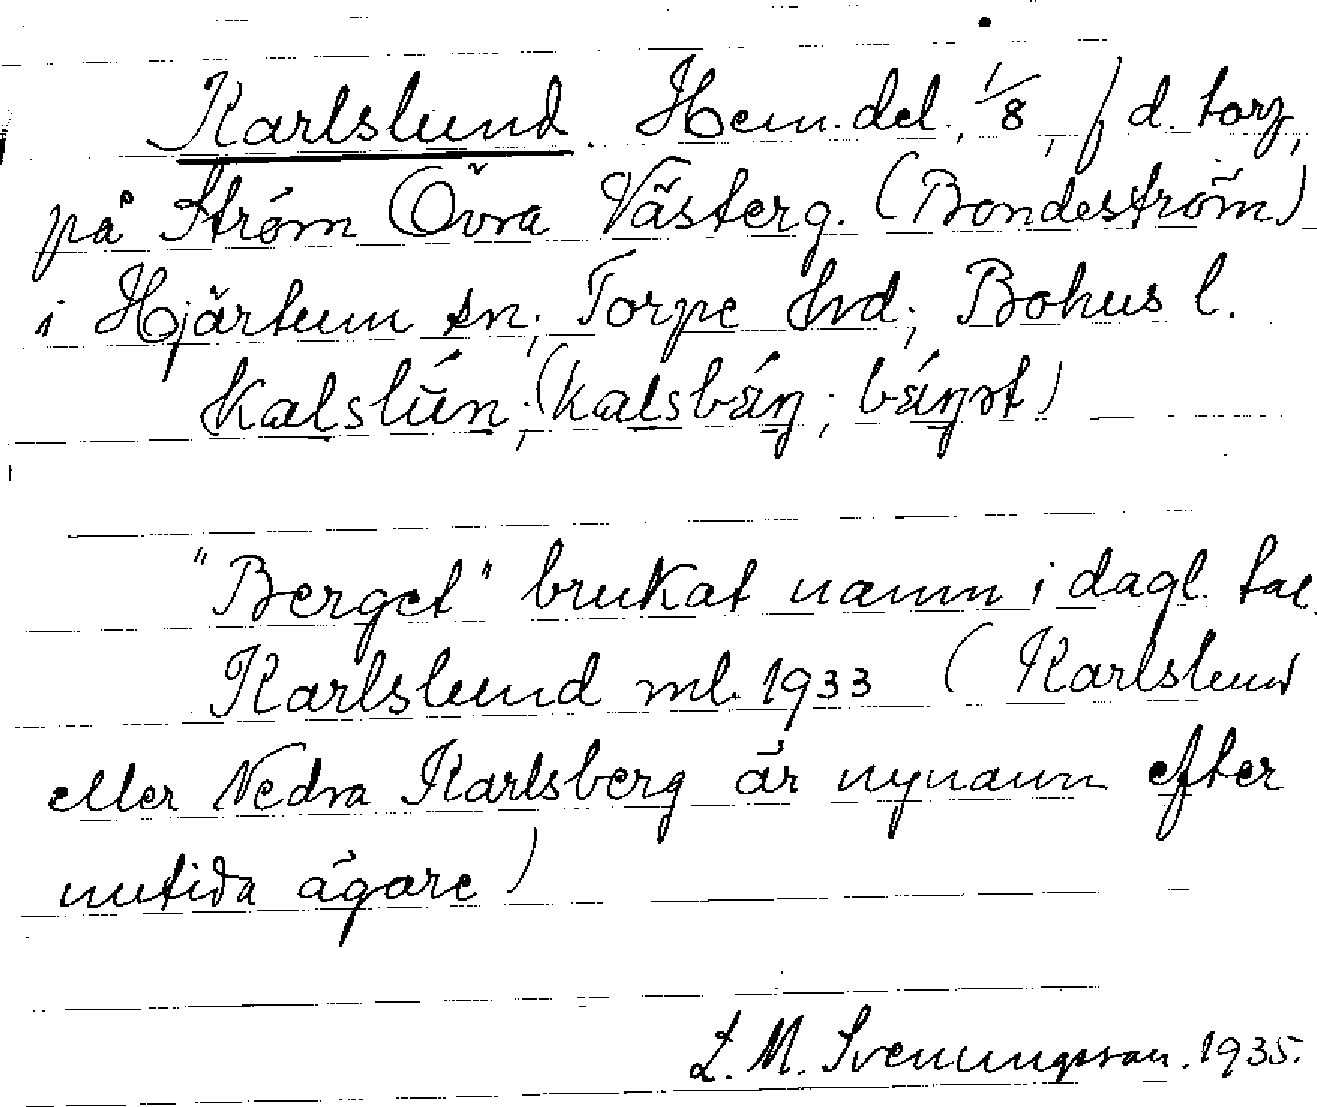 Karlslund. Hem.del., 1/8, f d. torp,
på Ström Övra Västerg. (Bondeström)
i Hjärtum sn; Torpe hrd; Bohus l.
kalslún; (kalsbáŋ; báŋət)
"Berget" brukat namn i dagl. tal.
Karlslund ml. 1933 (Karlslund
eller Nedra Karlsberg är nynamn efter
nutida ägare)
L. M. Svenungsson. 1935.